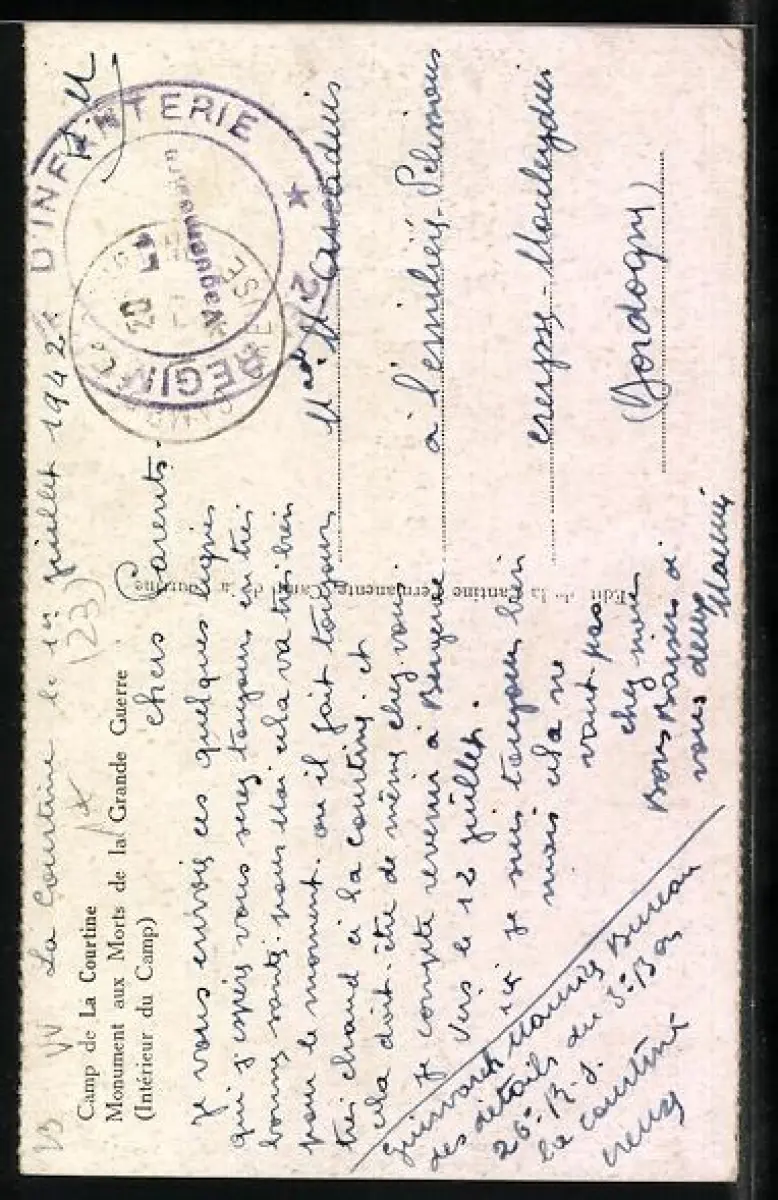 La Courtine le 1er juillet 1942.
(23)
Camp de La Courtine
Monument aux Morts de la Grande Guerre
(Intérieur du Camp)
chers Parents.
je vous envoie ces quelques lignes
qui j'espère vous serez toujours en très
bonne santé. pour Moi cela va très bien
pour le moment. ou il fait toujours
très chaud à la courtine. et
cela doit-être de même chez vous.
je compte revenir à Bergerac
vers le 12 juillet.
ici je suis toujours bien
mais cela ne
vaut pas
chez moi
Bons Baisers à
vous deux
Maurice
Maurice Bureau
des détails du 3e Bon
26e R.I.
la courtine
creuse
Edit. de la Cantine Permanente, Camp de la Courtine
F.M
REGIM D'INFANTERIE
Vaguemestre
à l'
creysse-Mouleydier
(Dordogne)